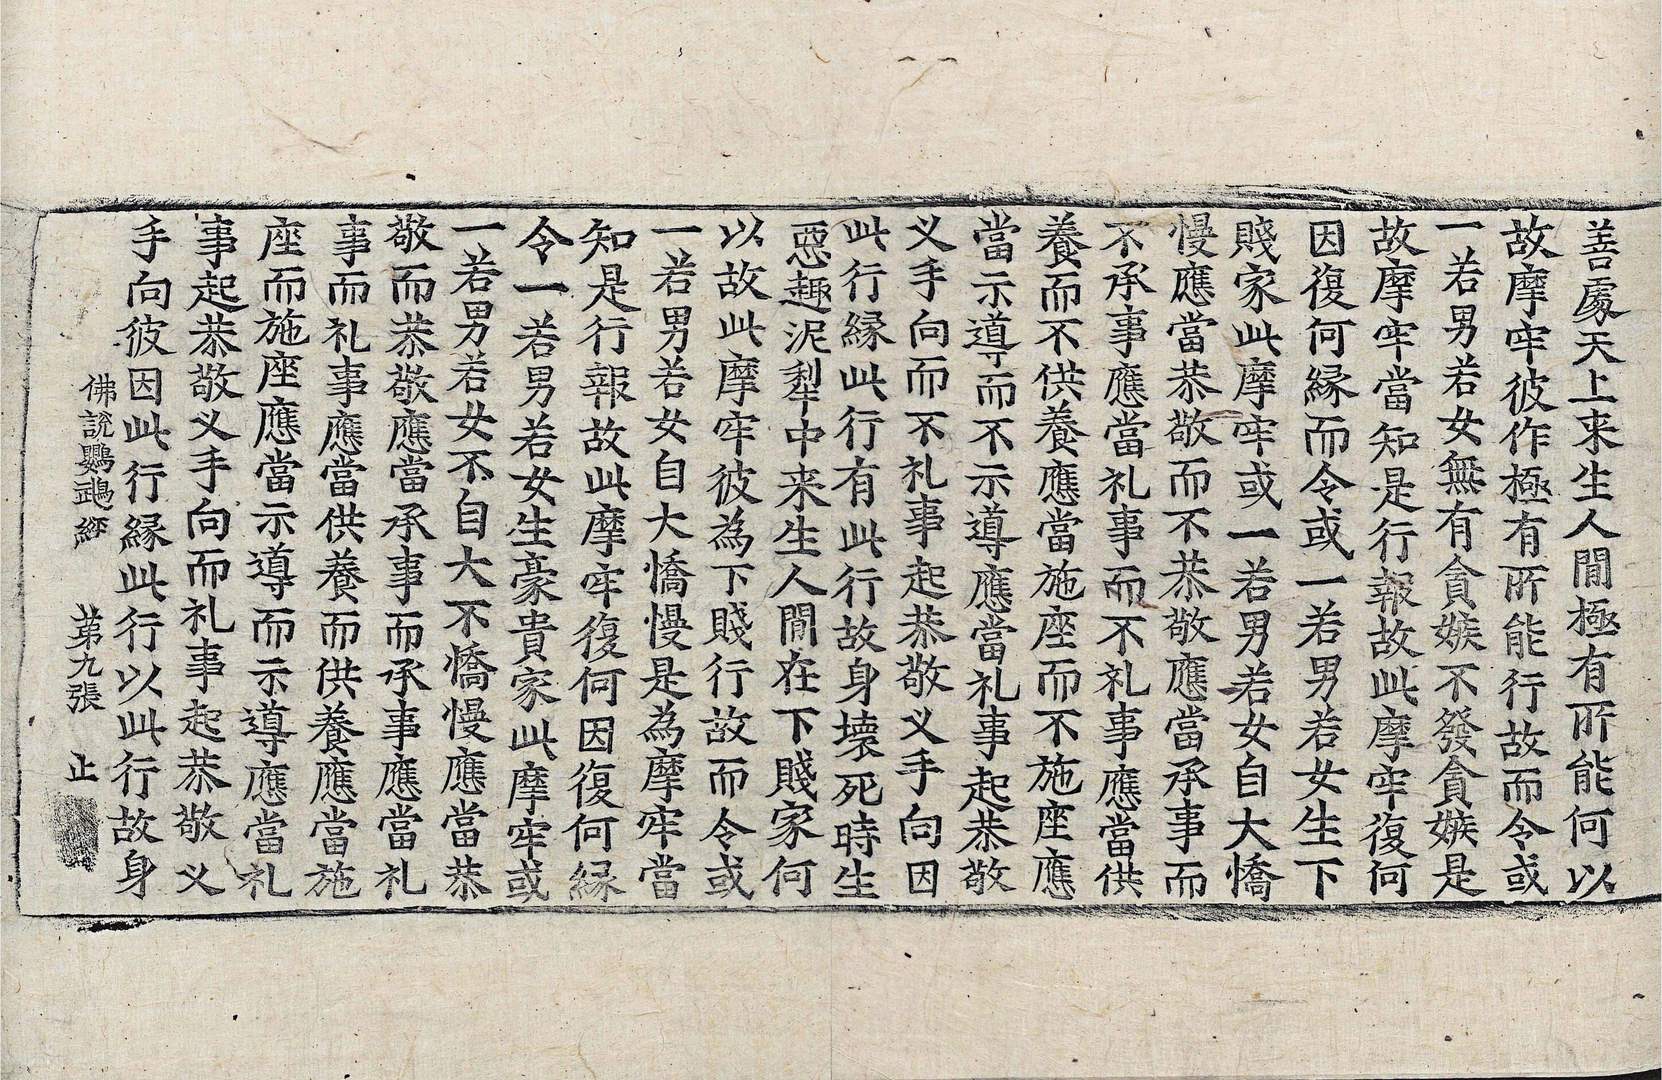 善處天上来生人間極有所能何以
故摩牢彼作極有所能行故而令或
一若男若女無有貪嫉不發貪嫉是
故摩牢當知是行報故此摩牢復何
因復何縁而令或一若男若女生下
賤家此摩牢或一若男若女自大憍
慢應當恭敬而不恭敬應當承事而
不承事應當礼事而不礼事應當供
養而不供養應當施座而不施座應
當示導而不示導應當礼事起恭敬
叉手向而不礼事起恭敬叉手向因
此行縁此行有此行故身壊死時生
惡趣泥犁中来生人間在下賤家何
以故此摩牢彼為下賤行故而令或
一若男若女自大憍慢是為摩牢當
知是行報故此摩牢復何因復何縁
令一若男若女生豪貴家此摩牢或
一若男若女不自大不憍慢應當恭
敬而恭敬應當承事而承事應當礼
事而礼事應當供養而供養應當施
座而施座應當示導而示導應當礼
事起恭敬叉手向而礼事起恭敬叉
手向彼因此行縁此行以此行故身
佛說鸚鵡經 第九張 止